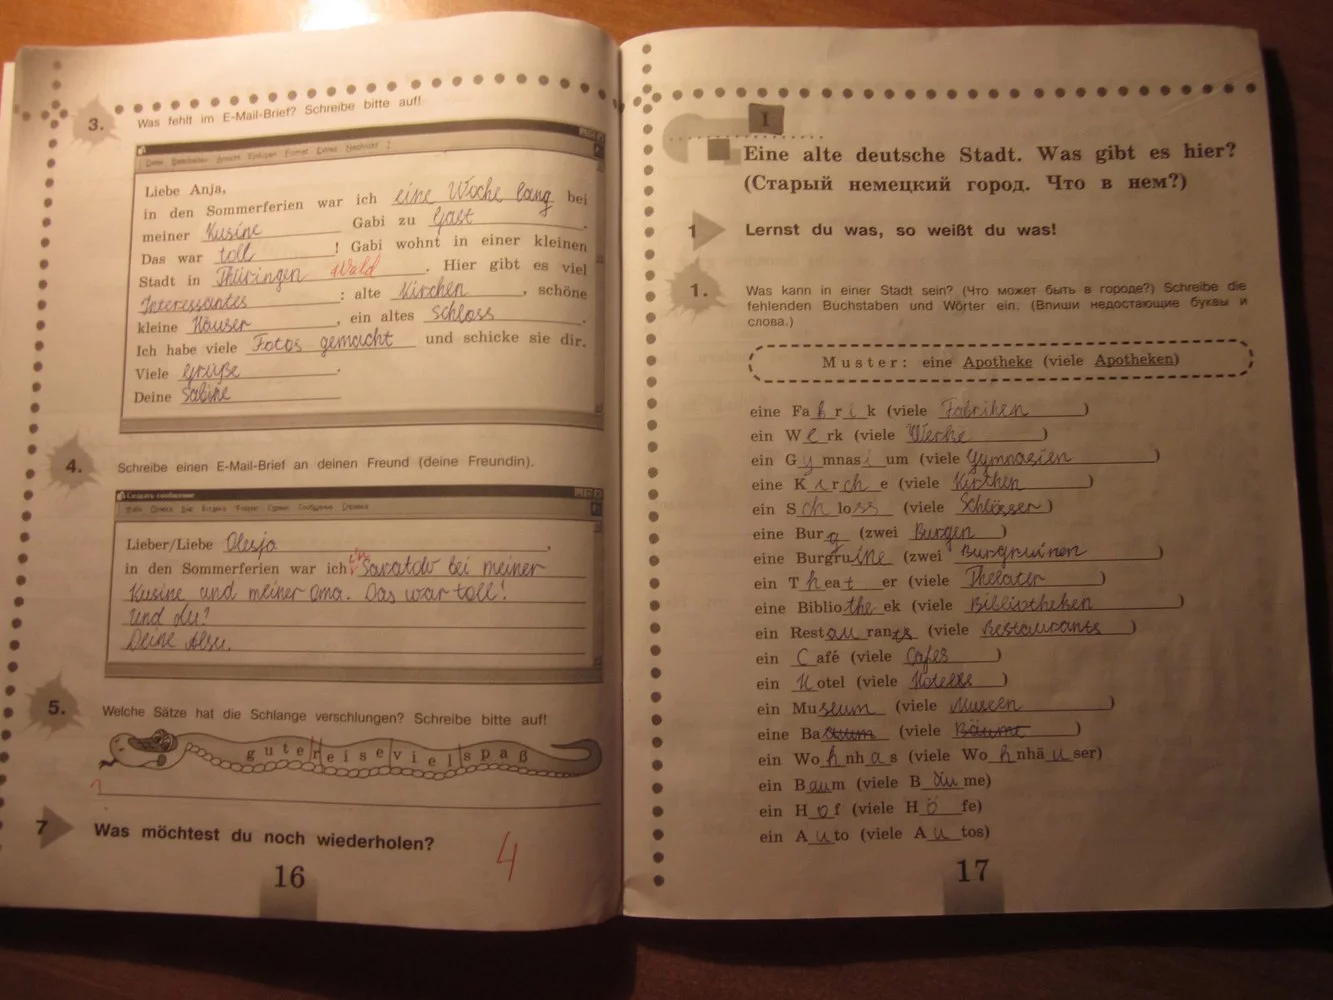 3.
Was fehlt im E-Mail-Brief? Schreibe bitte auf!
Datei Bearbeiten Ansicht Einfügen Format Extras Nachricht ?
Liebe Anja,
in den Sommerferien war ich eine Woche lang bei
meiner Kusine Gabi zu Gast.
Das war toll! Gabi wohnt in einer kleinen
Stadt in Thüringen Wald. Hier gibt es viel
Interessantes: alte Kirchen, schöne
kleine Häuser, ein altes Schloss.
Ich habe viele Fotos gemacht und schicke sie dir.
Viele Grüße.
Deine Sabine
4.
Schreibe einen E-Mail-Brief an deinen Freund (deine Freundin).
Создать сообщение
Файл Правка Вид Вставка Формат Сервис Сообщение Справка
Lieber/Liebe Olesja,
in den Sommerferien war ich in Saratow bei meiner
Kusine und meiner Oma. Das war toll!
Und du?
Deine Alsu.
5.
Welche Sätze hat die Schlange verschlungen? Schreibe bitte auf!
gutereisevielspaß
7
Was möchtest du noch wiederholen?
4
16
I
Eine alte deutsche Stadt. Was gibt es hier?
(Старый немецкий город. Что в нем?)
1
Lernst du was, so weißt du was!
1.
Was kann in einer Stadt sein? (Что может быть в городе?) Schreibe die
fehlenden Buchstaben und Wörter ein. (Впиши недостающие буквы и
слова.)
Muster: eine Apotheke (viele Apotheken)
eine Fabrik (viele Fabriken)
ein Werk (viele Werke)
ein Gymnasium (viele Gymnasien)
eine Kirche (viele Kirchen)
ein Schloss (viele Schlösser)
eine Burg (zwei Burgen)
eine Burgruine (zwei Burgruinen)
ein Theater (viele Theater)
eine Bibliothek (viele Bibliotheken)
ein Restaurants (viele Restaurants)
ein Café (viele Cafes)
ein Hotel (viele Hotels)
ein Museum (viele Museen)
eine Ba (viele Bäume)
ein Wohnhas (viele Wohnhäuser)
ein Baum (viele Bäume)
ein Hof (viele Höfe)
ein Auto (viele Autos)
17